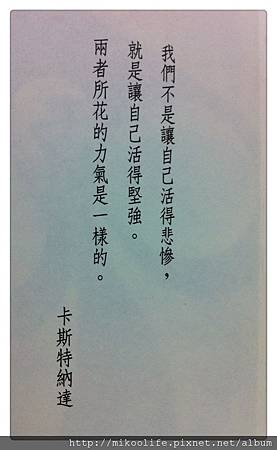 我們不是讓自己活得悲慘，
就是讓自己活得堅強。
兩者所花的力氣是一樣的。
卡斯特納達
http://mikoolife.pixnet.net/album